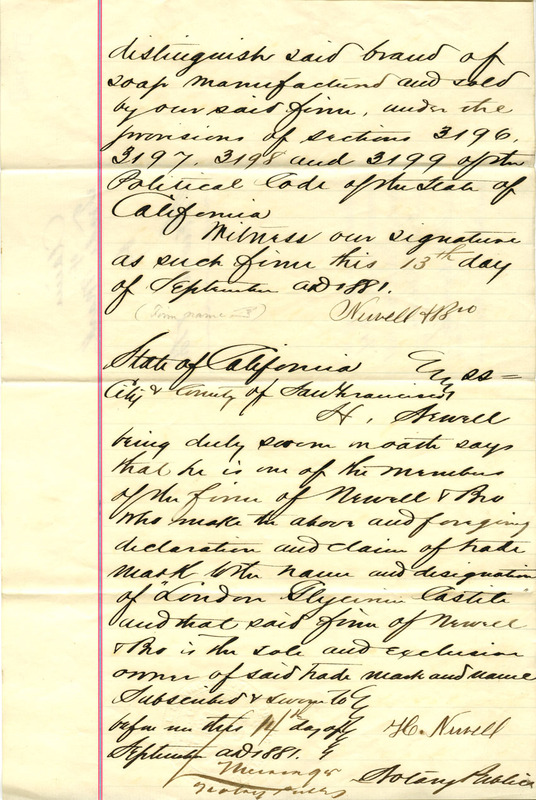 distinguish said brand of
soap manufactured and sold
by our said firm, under the
provisions of sections 3196,
3197, 3198 and 3199 of the
Political Code of the State of
California
Witness our signature
as such firm this 13th day
of September AD 1881.
(Firm name)
Newell & Bro
State of California
City & County of San Francisco ss=
H. Newell
being duly sworn on oath says
that he is one of the members
of the firm of Newell & Bro
who make the above and forgoing
declaration and claim of trade
mark to the name and designation
of "London Glycerine Castile"
and that said firm of Newell
& Bro is the sole and exclusive
owner of said trade mark and name
Subscribed & sworn to
before me this 14th day of
September AD 1881.
H. Newell
Notary Public